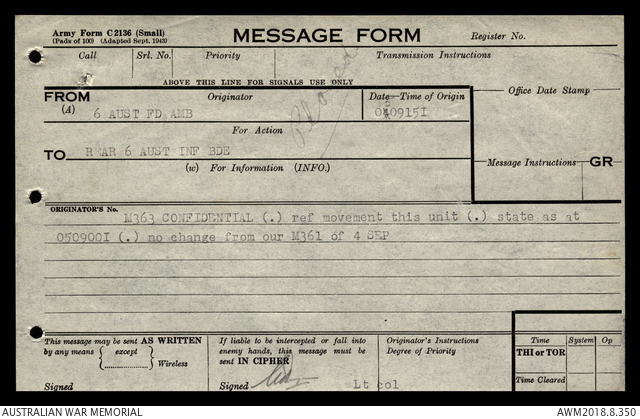 Army Form C2136 (Small)
(Pads of 100) (Adapted Sept. 1943)
MESSAGE FORM
Register No.
Call Srl. No. Priority Transmission Instructions
ABOVE THIS LINE FOR SIGNALS USE ONLY
FROM Originator Date—Time of Origin
Office Date Stamp
(A) 6 AUST FD AMB 0509151
For Action
TO R EAR 6 AUST INF BDE
(w) For Information (INFO.)
Message Instructions GR
ORIGINATOR'S No.
M363 CONFIDENTIAL (.) ref movement this unit (.) state as at
050900I (.) no change from our M361 of 4 SEP
This message may be sent AS WRITTEN
by any means except
Wireless
If liable to be intercepted or fall into
enemy hands, this message must be
sent IN CIPHER
Originator's Instructions
Degree of Priority
Time System Op
THI or TOR
Time Cleared
Signed
Signed Lt col
AUSTRALIAN WAR MEMORIAL AWM2018.8.350